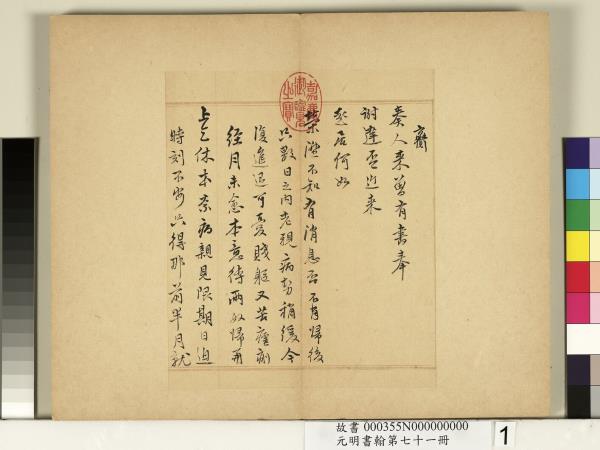 齋
奏人来曾有書奉
謝達否近来
起居何如
榮滯不知有消息否 不肖歸後
只數日之内老親病勢稍緩今
復進退可憂賤軀又苦瘡癤
經月未愈本意待兩奴歸再
上之休本奈病親見限期日迫
時刻不安只得那前半月就
嘉慶御覽之寶
故書 000355N000000000
元明書翰第七十一冊
1